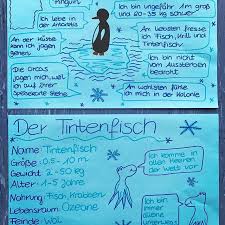 Pinguin
Ich lebe in
der Antarktis
Ich bin ungefähr 1m groß
und 20-35 kg schwer
An der Küste
kann ich jagen
gehen
Am liebsten fresse
ich Fisch, Krill und
Tintenfisch
Die Orcas
jagen mich, weil
ich auf ihrer
Speisekarte stehe
Ich bin nicht
vom Aussterben
bedroht
Am wohlsten fühle
ich mich in der Kolonie
Der Tintenfisch
Name: Tintenfisch
Größe: 0,5-10 m
Gewicht: 2-50 kg
Alter: 1-5 Jahre
Nahrung: Fisch, Krabben
Lebensraum: Ozeane
Feinde: Wal
Ich komme in
allen Meeren
der Welt vor
Ich bin
immer
alleine
unterwegs